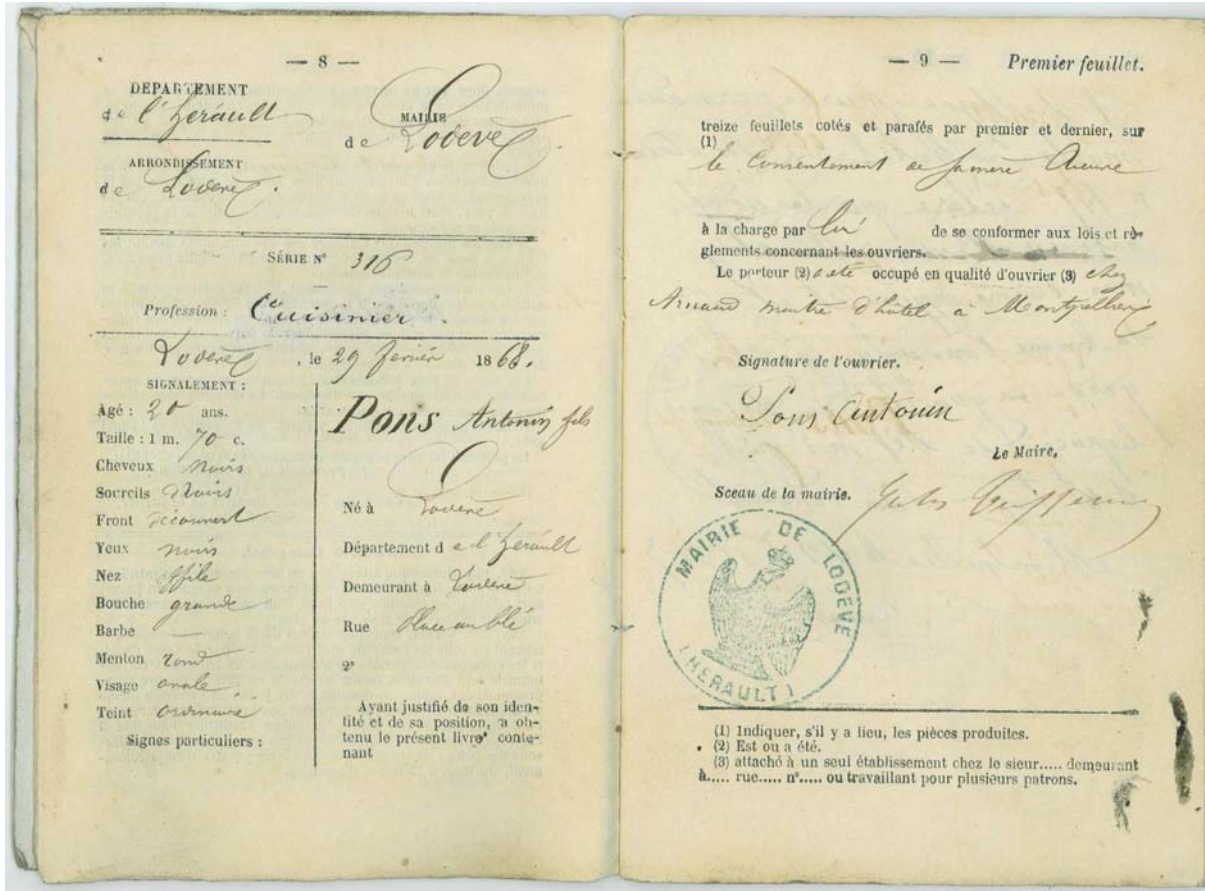 — 8 —
DEPARTEMENT
de l'hérault
MAIRIE
de Lodève
ARRONDISSEMENT
de Lodève.
SÉRIE N° 316
Profession : Cuisinier
Lodève, le 29 fevrier 1868.
SIGNALEMENT :
Agé : 20 ans.
Taille : 1 m. 70 c.
Cheveux noirs
Sourcils Noirs
Front découvert
Yeux noirs
Nez effilé
Bouche grande
Barbe —
Menton rond
Visage ovale
Teint ordinaire
Signes particuliers :
Pons Antonin fils
Né à Lodève
Département de l'hérault
Demeurant à Lodève
Rue Place au blé
2°
Ayant justifié de son iden-
tité et de sa position, a ob-
tenu le présent livret conte-
nant
— 9 — Premier feuillet.
treize feuillets cotés et parafés par premier et dernier, sur
(1)
le Consentement de sa mère
à la charge par lui de se conformer aux lois et rè-
glements concernant les ouvriers.
Le porteur (2) a été occupé en qualité d'ouvrier (3) chez
Arnaud maitre d'hôtel à Montpellier
Signature de l'ouvrier.
Pons Antonin
Le Maire,
Sceau de la mairie.
Jules
MAIRIE DE LODÈVE
(HERAULT)
(1) Indiquer, s'il y a lieu, les pièces produites.
(2) Est ou a été.
(3) attaché à un seul établissement chez le sieur..... demeurant
à..... rue..... n°..... ou travaillant pour plusieurs patrons.